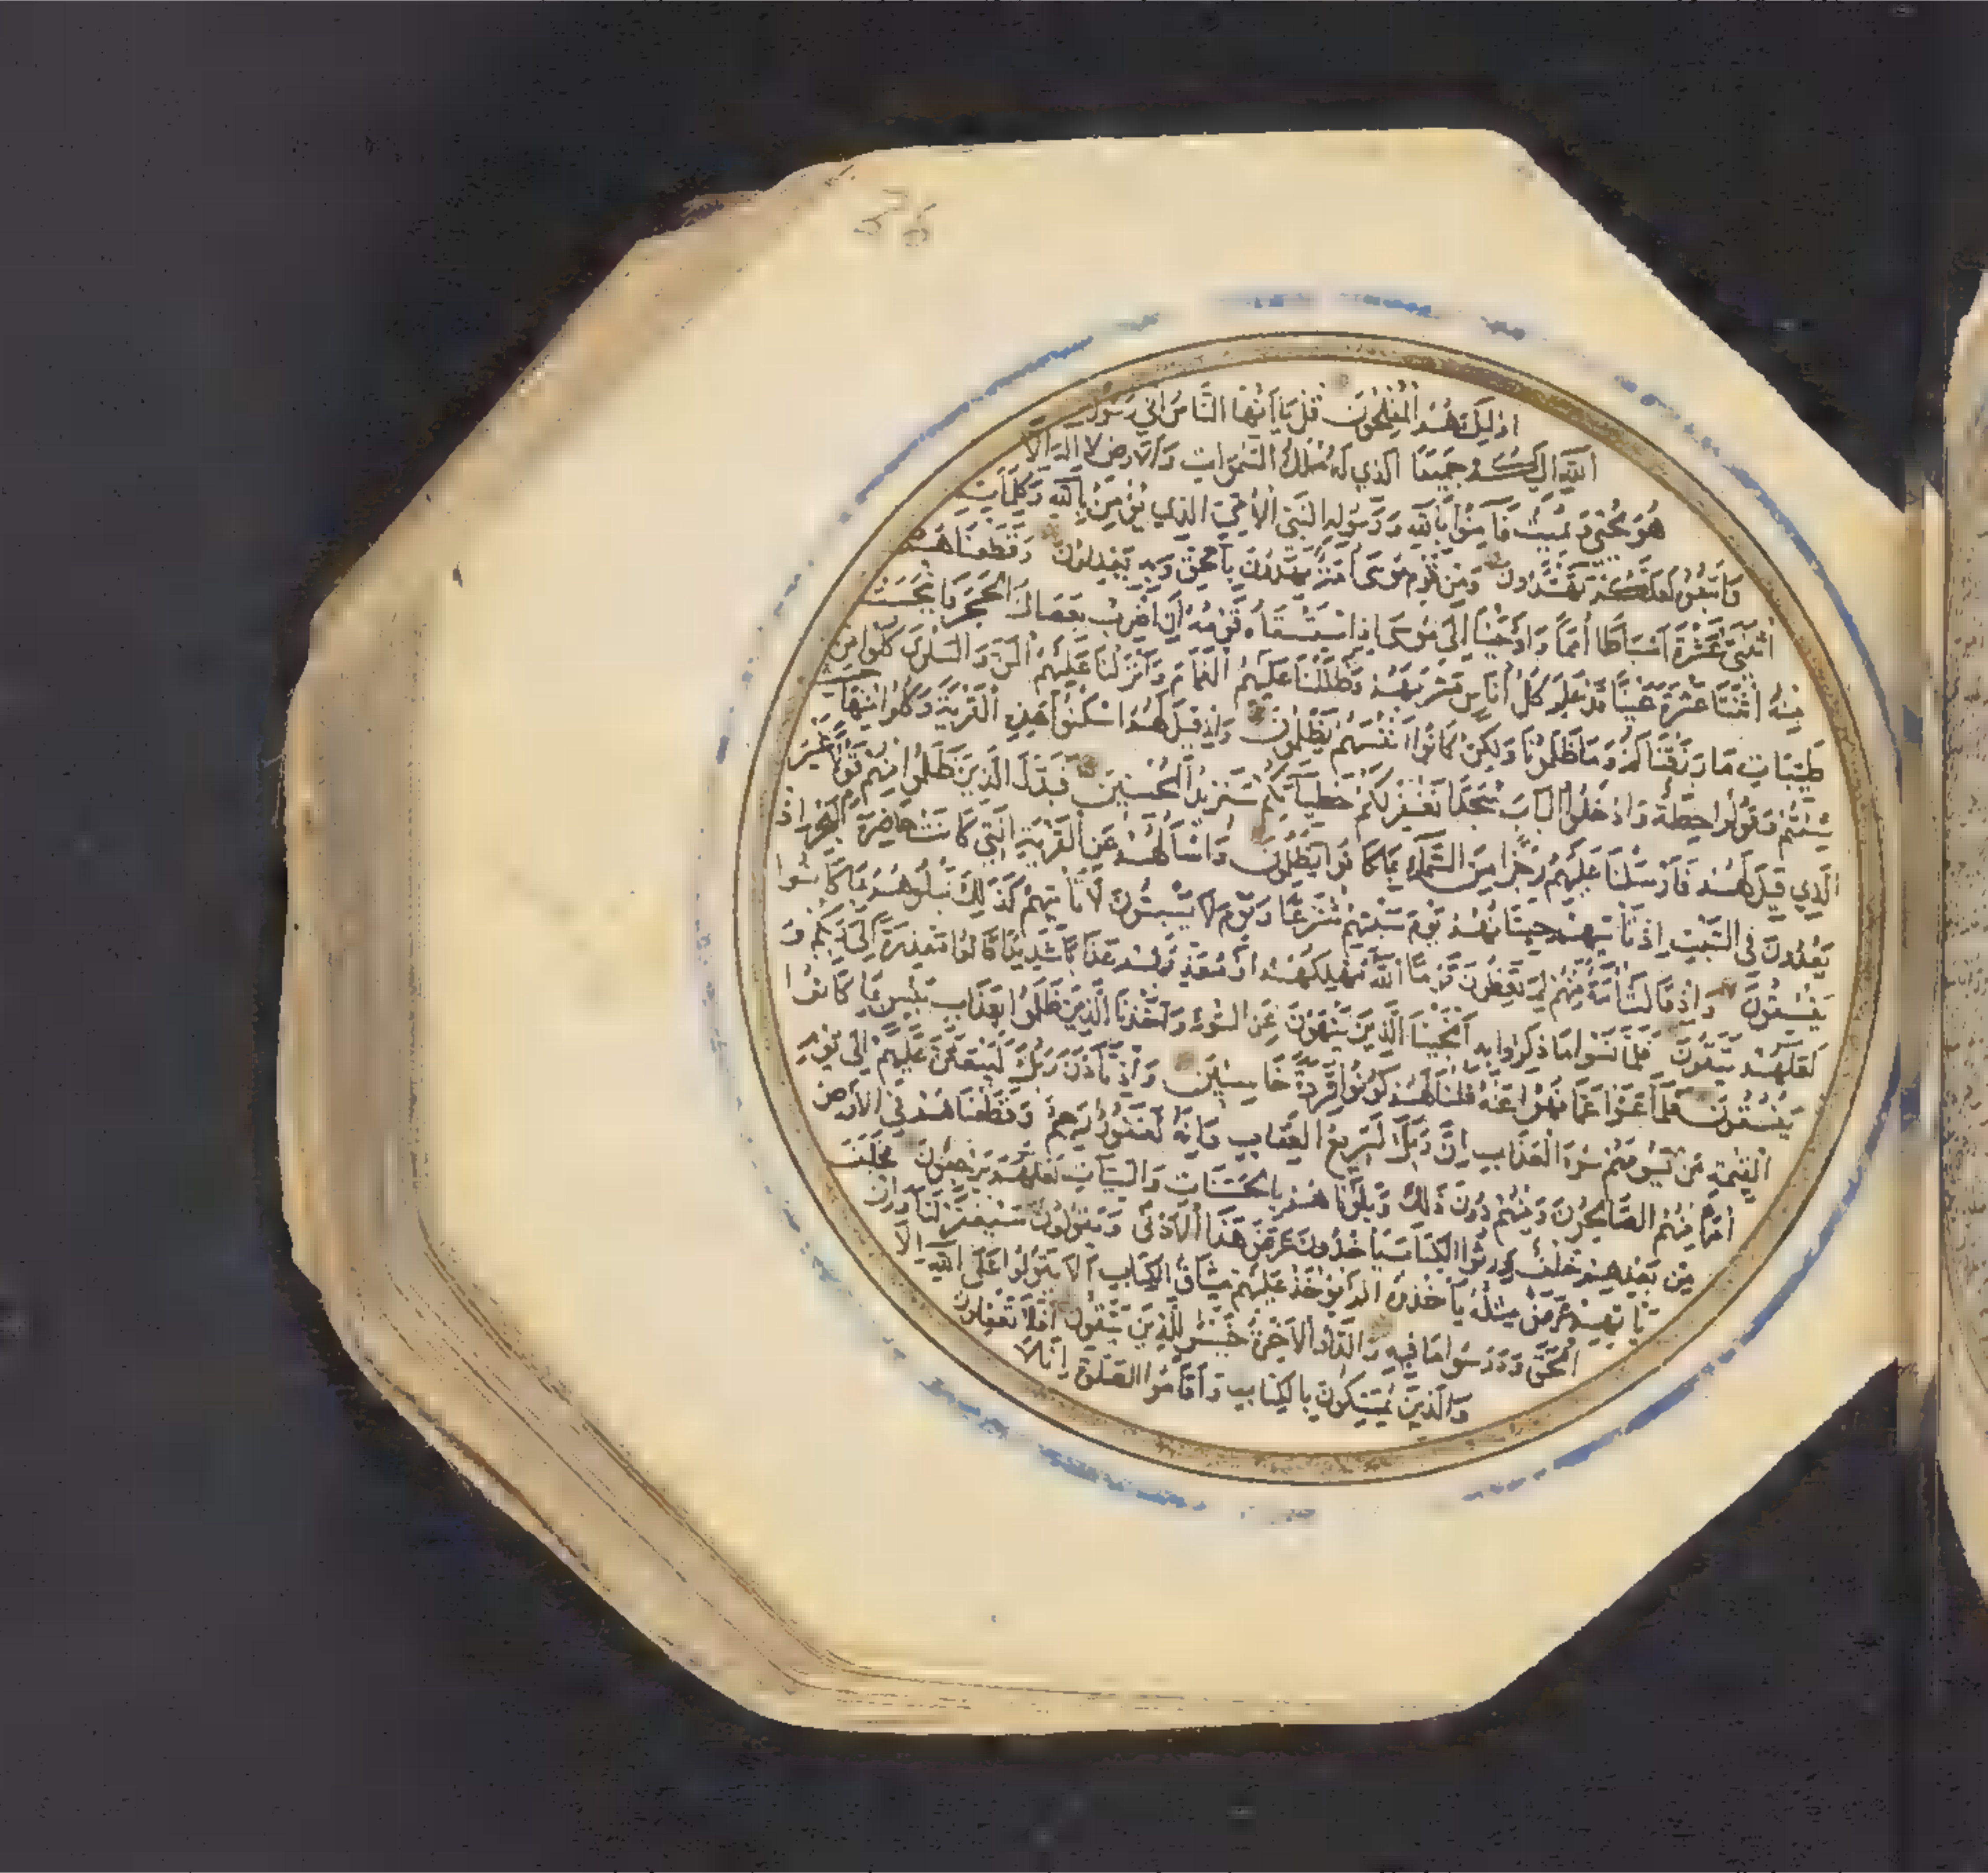 56
اولئك هم المفلحون قل يا ايها الناس اني رسول
الله اليكم جميعا الذي له ملك السموات والارض لا اله الا
هو يحيي ويميت فامنوا بالله ورسوله النبي الامي الذي يؤمن بالله وكلماته
واتبعوه لعلكم تهتدون ومن قوم موسى امة يهدون بالحق وبه يعدلون وقطعناهم
اثنتي عشرة اسباطا امما واوحينا الى موسى اذ استسقاه قومه ان اضرب بعصاك الحجر فانبجست
منه اثنتا عشرة عينا قد علم كل اناس مشربهم وظللنا عليهم الغمام وانزلنا عليهم المن والسلوى كلوا من
طيبات ما رزقناكم وما ظلمونا ولكن كانوا انفسهم يظلمون واذ قيل لهم اسكنوا هذه القرية وكلوا منها حيث
شئتم وقولوا حطة وادخلوا الباب سجدا نغفر لكم خطيآتكم سنزيد المحسنين فبدل الذين ظلموا منهم قولا غير
الذي قيل لهم فارسلنا عليهم رجزا من السماء بما كانوا يظلمون واسألهم عن القرية التي كانت حاضرة البحر اذ
يعدون في السبت اذ تأتيهم حيتانهم يوم سبتهم شرعا ويوم لا يسبتون لا تأتيهم كذلك نبلوهم بما كانوا
يفسقون واذ قالت امة منهم لم تعظون قوما الله مهلكهم او معذبهم عذابا شديدا قالوا معذرة الى ربكم و
لعلهم يتقون فلما نسوا ما ذكروا به انجينا الذين ينهون عن السوء واخذنا الذين ظلموا بعذاب بئيس بما كانوا
يفسقون فلما عتوا عما نهوا عنه قلنا لهم كونوا قردة خاسئين واذ تأذن ربك ليبعثن عليهم الى يوم
القيمة من يسومهم سوء العذاب ان ربك لسريع العقاب وانه لغفور رحيم وقطعناهم في الارض
امما منهم الصالحون ومنهم دون ذلك وبلوناهم بالحسنات والسيآت لعلهم يرجعون فخلف
من بعدهم خلف ورثوا الكتاب يأخذون عرض هذا الادنى ويقولون سيغفر لنا وان
يأتهم عرض مثله يأخذوه الم يؤخذ عليهم ميثاق الكتاب ان لا يقولوا على الله الا
الحق ودرسوا ما فيه والدار الاخرة خير للذين يتقون افلا تعقلون
والذين يمسكون بالكتاب واقاموا الصلوة انا لا